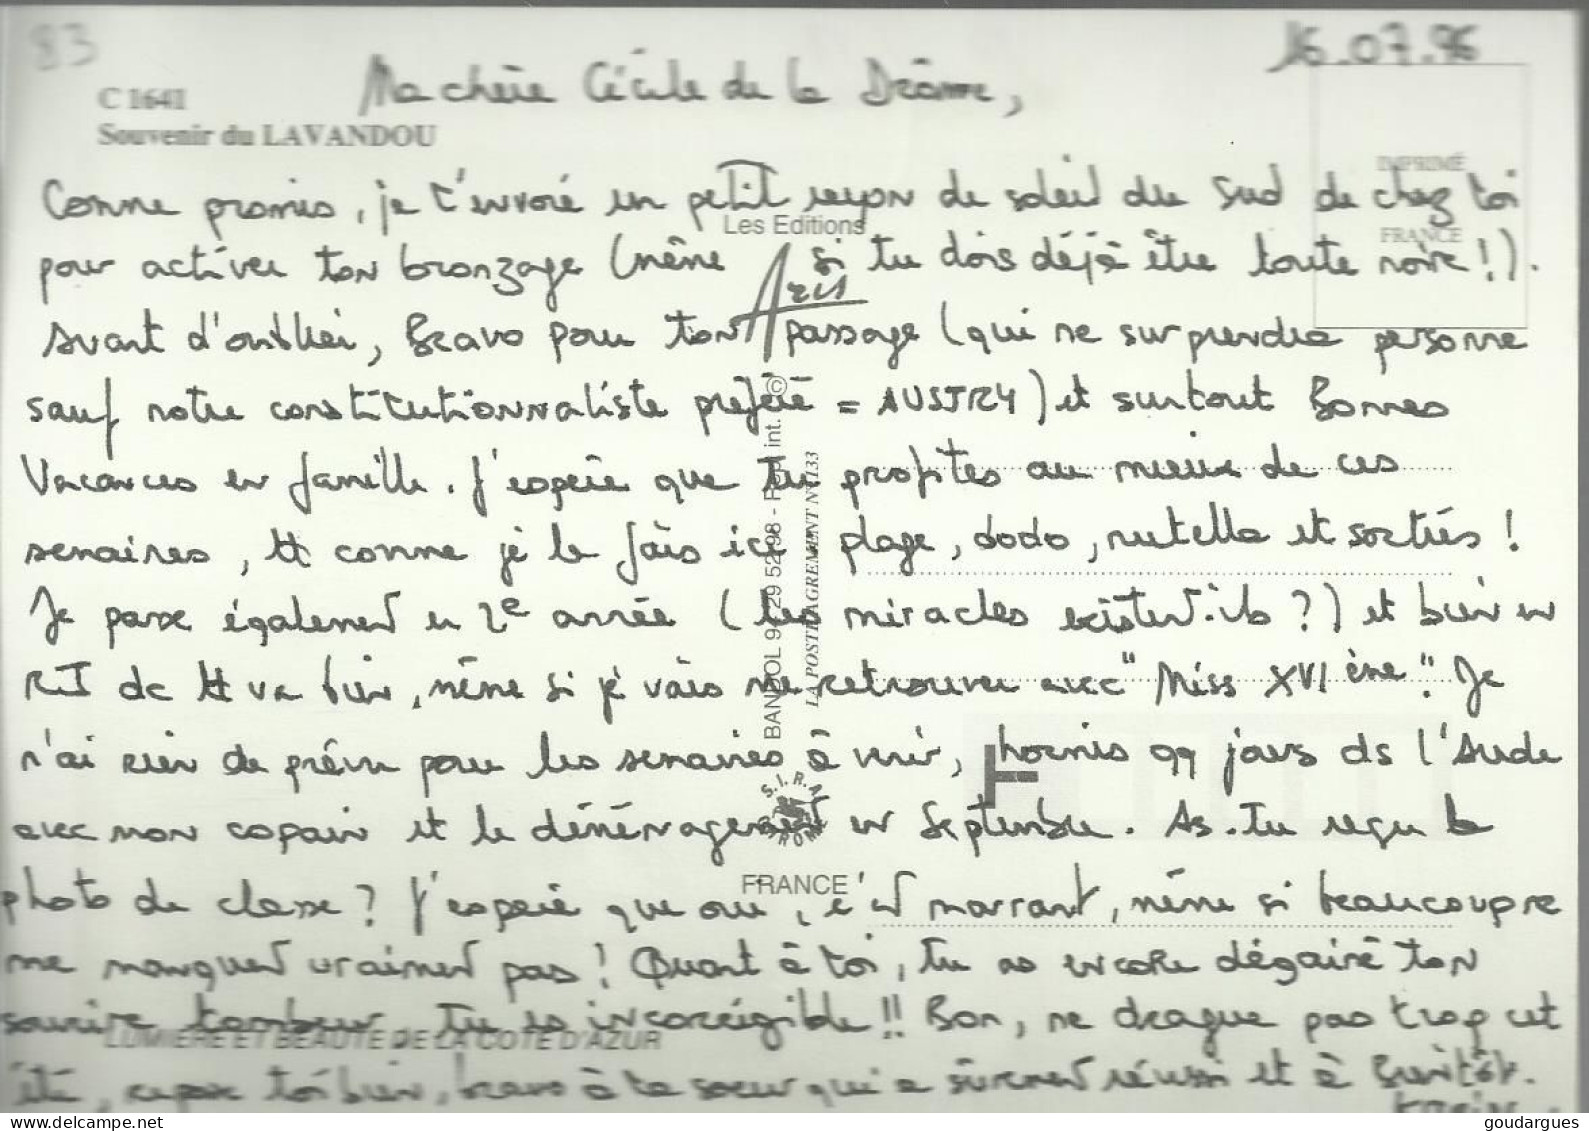 83
16.07.96
C 1641
Souvenir du LAVANDOU
Ma chère Cécile de la Drôme,
IMPRIMÉ
FRANCE
Comme promis, je t'envoie un petit rayon de soleil du Sud de chez toi
Les Editions
pour activer ton bronzage (même si tu dois déjà être toute noire !).
Aris
Avant d'oublier, Bravo pour ton passage (qui ne surprendra personne
sauf notre constitutionnaliste préféré = AUSTRY) et surtout Bonnes
Vacances en famille. J'espère que tu profites au mieux de ces
semaines, tt comme je le fais ici : plage, dodo, nutella et sorties !
Je passe également en 2e année (les miracles existent-ils ?) et bien en
RI dc tt va bien, même si je vais me retrouver avec "Miss XVI ème". Je
n'ai rien de prévu pour les semaines à venir, hormis qq jours ds l'Aude
avec mon copain et le déménagement en Septembre. As-tu reçu la
photo de classe ? J'espère que oui, c'est marrant, même si beaucoup
me manquent vraiment pas ! Quant à toi, tu as encore dégainé ton
sourire tombeur. Tu es incorrigible !! Bon, ne drague pas trop cet
été, repose toi bien, bravo à ta soeur qui a sûrement réussi et à Bientôt.
BANDOL 94 29 52 98 - Rep. int. ©
LA POSTE AGREMENT N° 133
S.I.R.A
FRANCE
LUMIERE ET BEAUTE DE LA COTE D'AZUR
goudargues